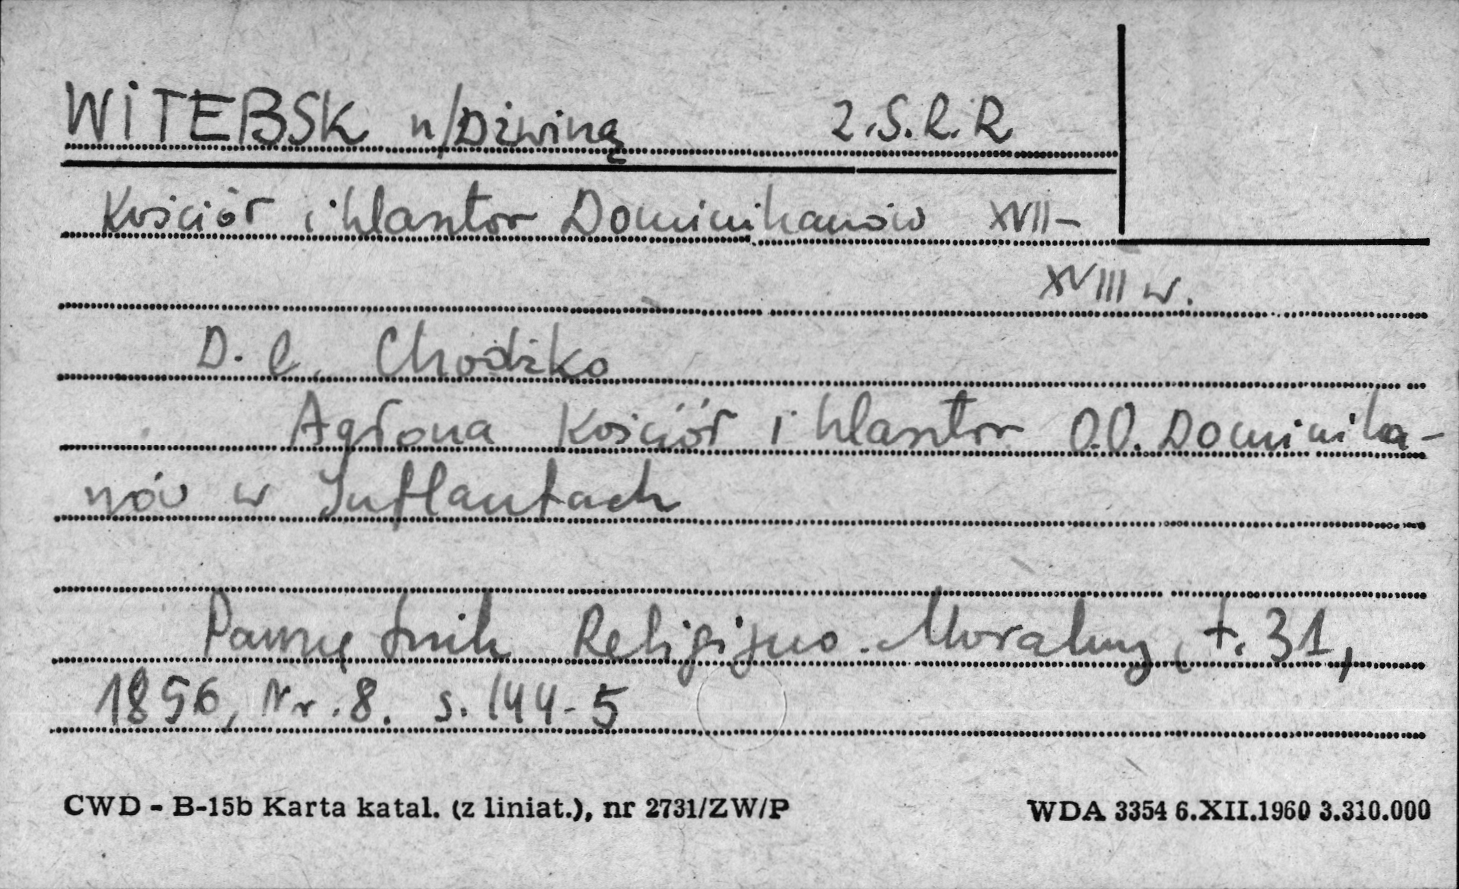 WITEBSK n/Dźwiną Z.S.R.R
Kościół i klasztor Dominikanów XVII-
XVIII w.
D. C. Chodźko
Agłona Kościół i klasztor O.O. Dominika-
nów w Inflantach
Pamiętnik Religijno-Moralny, t. 31,
1856, Nr. 8. s. 144-5
CWD - B-15b Karta katal. (z liniat.), nr 2731/ZW/P WDA 3354 6.XII.1960 3.310.000